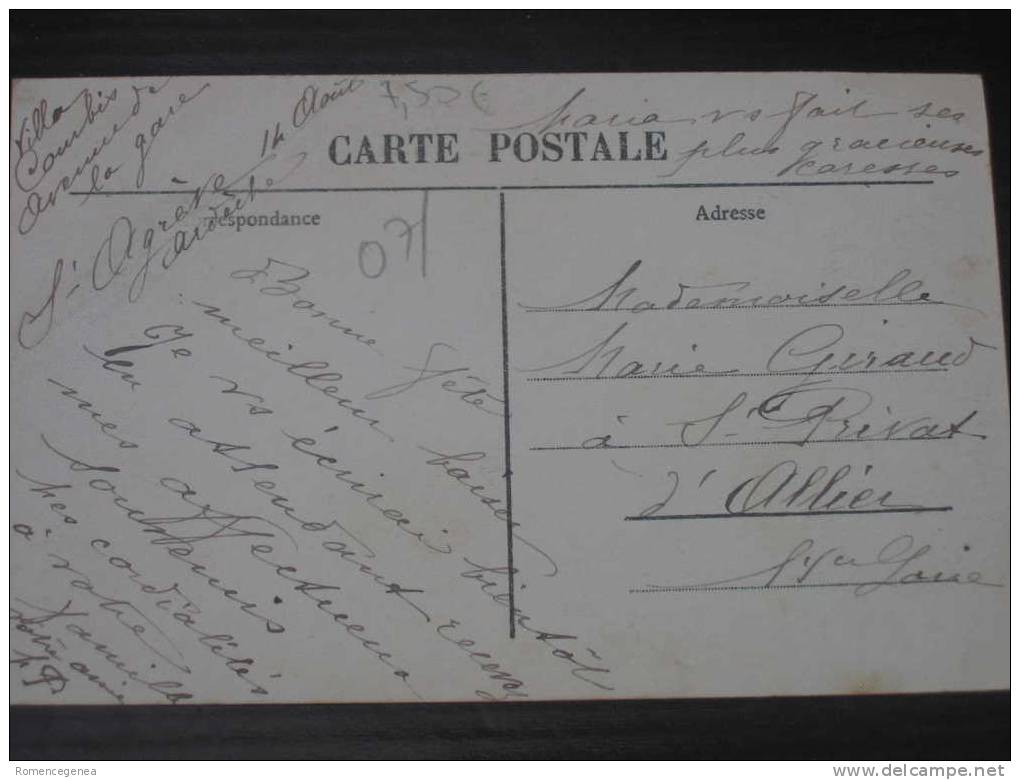 Villa
Courbis
Avenue de
la gare
St Agrève
Ardèche
14 Août
7,50 €
Maria vs fait ses
plus gracieuses
caresses
CARTE POSTALE
respondance
Adresse
07
Bonne fête
meilleur baiser bientôt
Je vs écrirai
en attendant recevez
mes affectueux
souvenirs
Mes cordialités
à votre
famille
Votre amie
Mademoiselle
Marie Giraud
à St Privat
d'Allier
Hte Loire
Romencegenea
www.delcampe.net